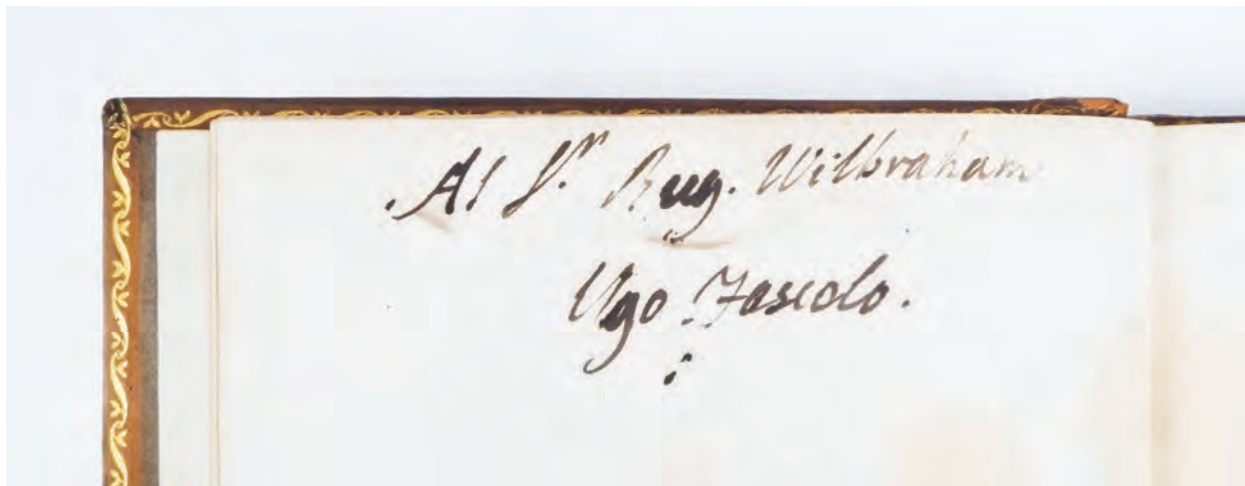 Al S.r Rog. Wilbraham
Ugo Foscolo.